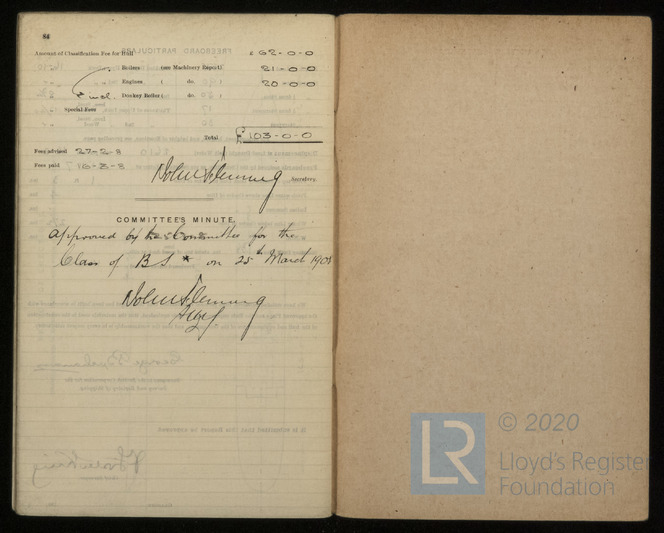 84
Amount of Classification Fee for Hull £ 62-0-0
Boilers (see Machinery Report) 21-0-0
Engines ( do. ) 20-0-0
incl. Donkey Boiler ( do. )
Special Fees
Total £ 103-0-0
Fees advised 27-2-8
Fees paid 16-3-8
Secretary.
COMMITTEE'S MINUTE.
approved by the Committee for the
Class of BS * on 25th March 1908
Secy
© 2020
LR
Lloyd's Register
Foundation